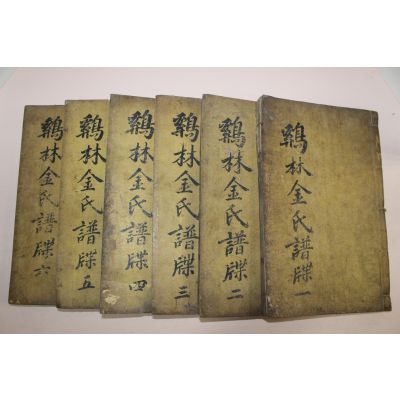 鷄林金氏譜牒一
鷄林金氏譜牒二
鷄林金氏譜牒三
鷄林金氏譜牒四
鷄林金氏譜牒五
鷄林金氏譜牒六